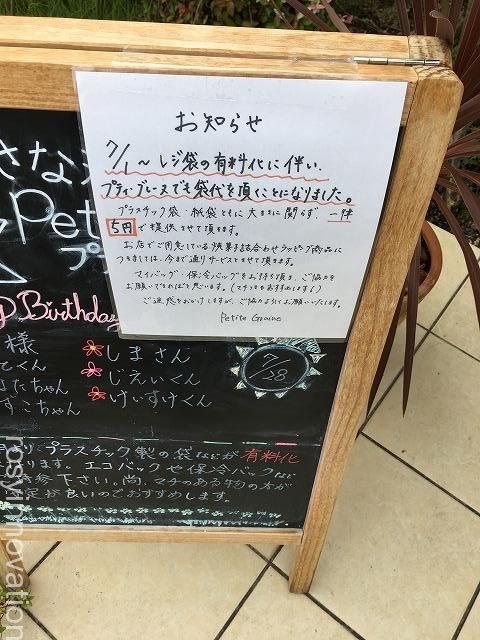 お知らせ
7/1〜レジ袋の有料化に伴い、
プティ・グレーヌでも袋代を頂くことになりました。
プラスチック袋・紙袋ともに大きさに関らず、一律
5円で提供させて頂きます。
お店でご用意している焼菓子詰合わせラッピング商品に
つきましては、今まで通りサービスとさせて頂きます。
マイバッグ・保冷バッグをお持ち頂き、ご協力を
お願いできればと思います。(マチつきおすすめします!)
ご迷惑をおかけしますが、ご協力よろしくお願いいたします。
Petite Graine
さな
Pet
プ
Birthday
様
しまさん
くん
じぇいくん
たちゃん
けいすけくん
ずこちゃん
7/28
プラスチック製の袋などが有料化
ります。エコバックや保冷バックなど
持参下さい。尚、マチのある物の方が
安定が良いのでおすすめします。
rosyrinnovation